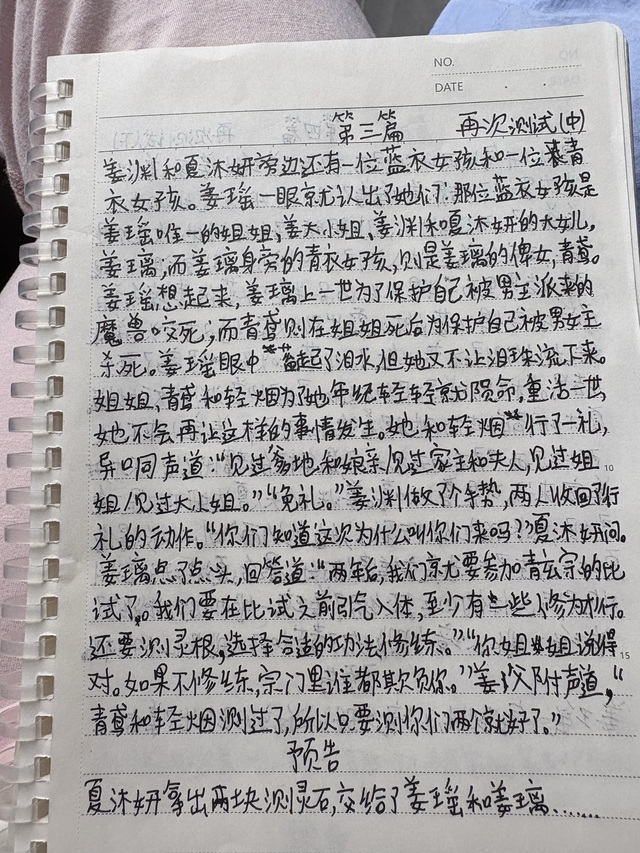 NO.
DATE . .
第三篇 再次测试(中)
姜渊和夏沐妍旁边还有一位蓝衣女孩和一位青
衣女孩。姜瑶一眼就认出了她们:那位蓝衣女孩是
姜瑶唯一的姐姐,姜大小姐、姜渊和夏沐妍的大女儿,
姜璃;而姜璃身旁的青衣女孩,则是姜璃的俾女,青鸢。
姜瑶想起来,姜璃上一世为了保护自己被男主派来的
魔兽咬死;而青鸢则在姐姐死后为保护自己被男女主
杀死。姜瑶眼中蓄起了泪水,但她又不让泪珠流下来。
姐姐,青鸢和轻烟为了她年纪轻轻就陨命,重活一世,
她不会再让这样的事情发生。她和轻烟行了一礼,
异口同声道:“见过爹地和娘亲/见过家主和夫人,见过姐
10
姐/见过大小姐。”“免礼。”姜渊做了个手势,两人收回了行
礼的动作。“你们知道这次为什么叫你们来吗?”夏沐妍问。
姜璃点了点头,回答道:“两年后,我们就要参加青玄宗的比
试了。我们要在比试之前引气入体,至少有一些修为才行。
还要测灵根,选择合适的功法修练。”“你姐姐说得
15
对。如果不修练,宗门里谁都欺负你。”姜父附声道,“
青鸢和轻烟测过了,所以只要测你们两个就好了。”
预告
夏沐妍拿出两块测灵石,交给了姜瑶和姜璃......